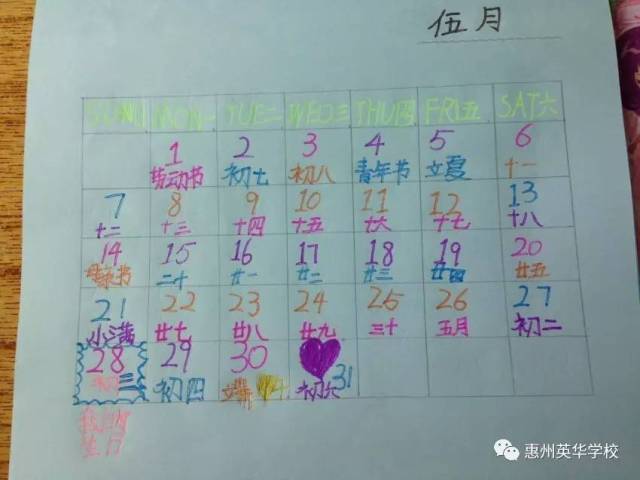 伍月
SUN日 MON一 TUE二 WED三 THU四 FRI五 SAT六
1 2 3 4 5 6
劳动节 初七 初八 青年节 立夏 十一
7 8 9 10 11 12 13
十二 十三 十四 十五 十六 十七 十八
14 15 16 17 18 19 20
母亲节 二十 廿一 廿二 廿三 廿四 廿五
21 22 23 24 25 26 27
小满 廿七 廿八 廿九 三十 五月 初二
28 29 30 31
初三 初四 初六
生日
惠州英华学校